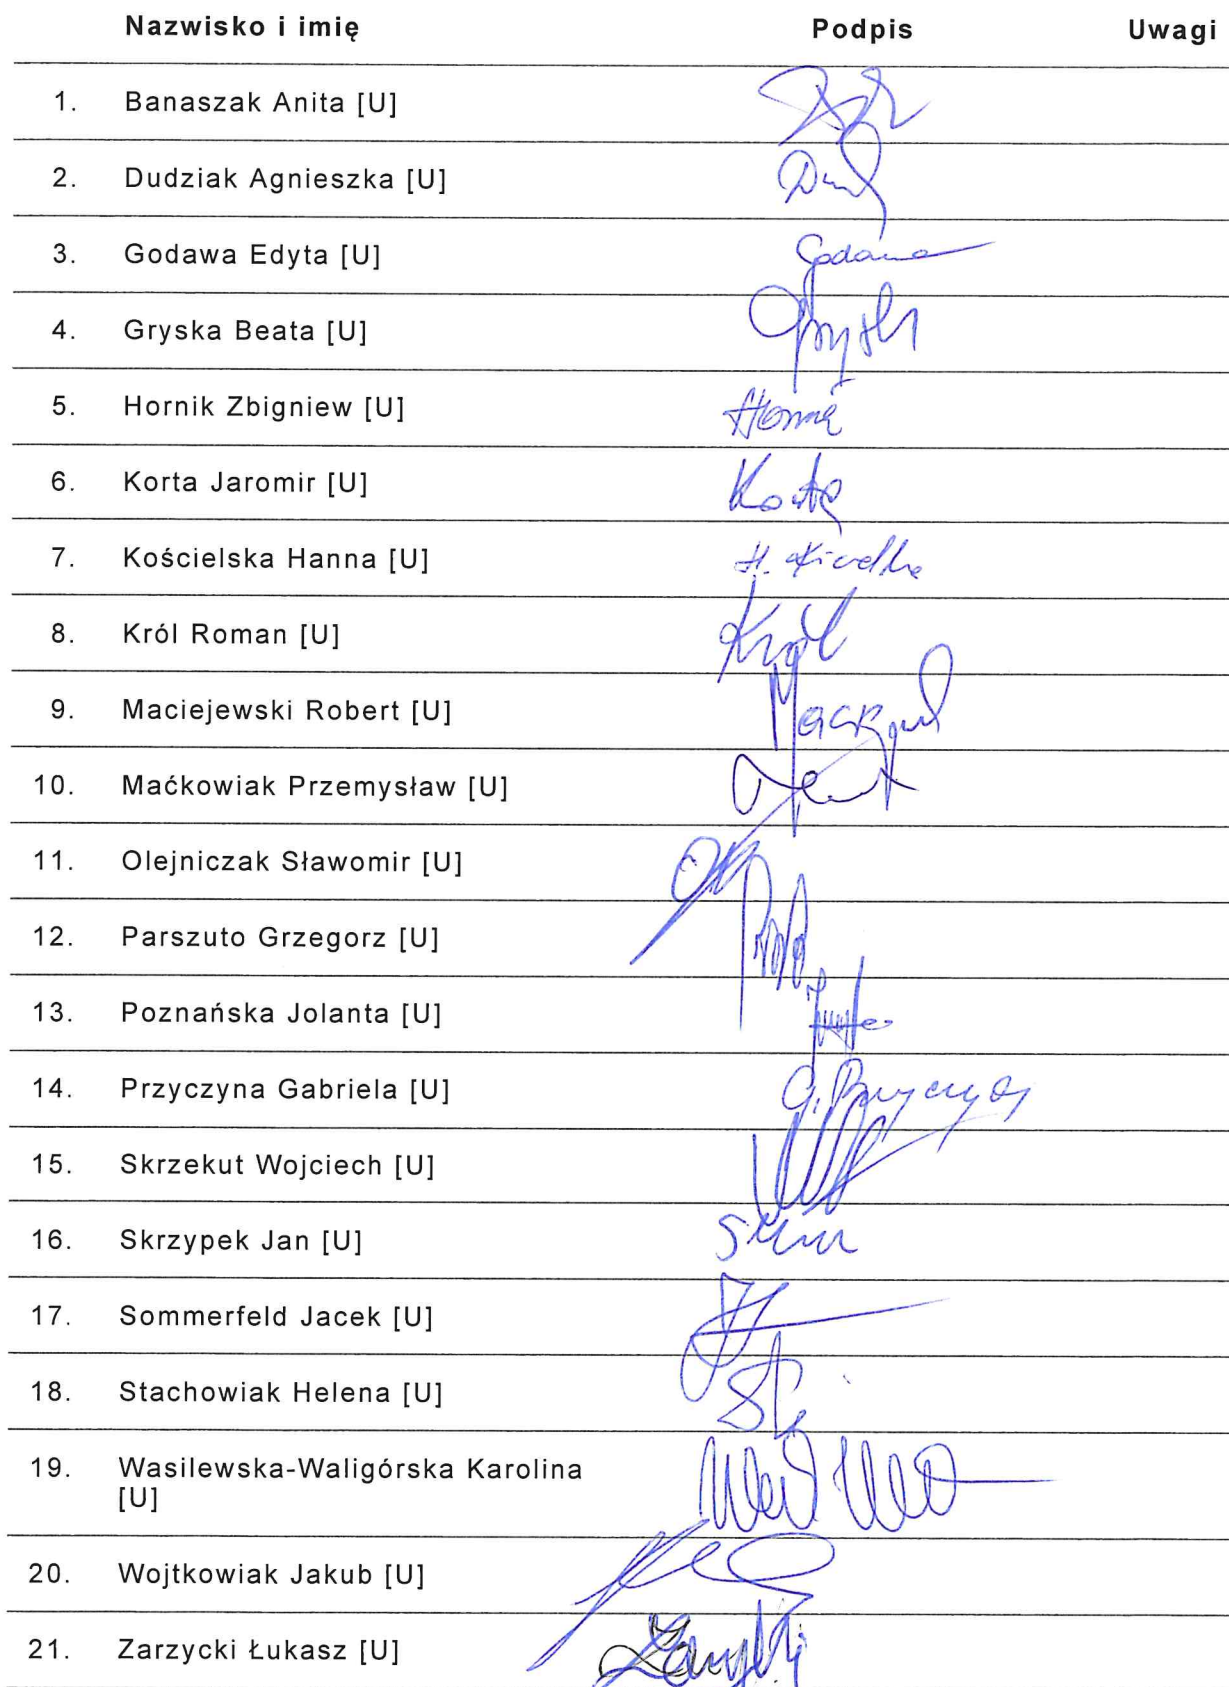 Nazwisko i imię Podpis Uwagi
1. Banaszak Anita [U]
2. Dudziak Agnieszka [U]
3. Godawa Edyta [U] Godawa
4. Gryska Beata [U]
5. Hornik Zbigniew [U]
6. Korta Jaromir [U] Korta
7. Kościelska Hanna [U]
8. Król Roman [U] Król
9. Maciejewski Robert [U]
10. Maćkowiak Przemysław [U]
11. Olejniczak Sławomir [U]
12. Parszuto Grzegorz [U]
13. Poznańska Jolanta [U]
14. Przyczyna Gabriela [U] G. Przyczyna
15. Skrzekut Wojciech [U]
16. Skrzypek Jan [U]
17. Sommerfeld Jacek [U]
18. Stachowiak Helena [U]
19. Wasilewska-Waligórska Karolina
[U]
20. Wojtkowiak Jakub [U]
21. Zarzycki Łukasz [U]